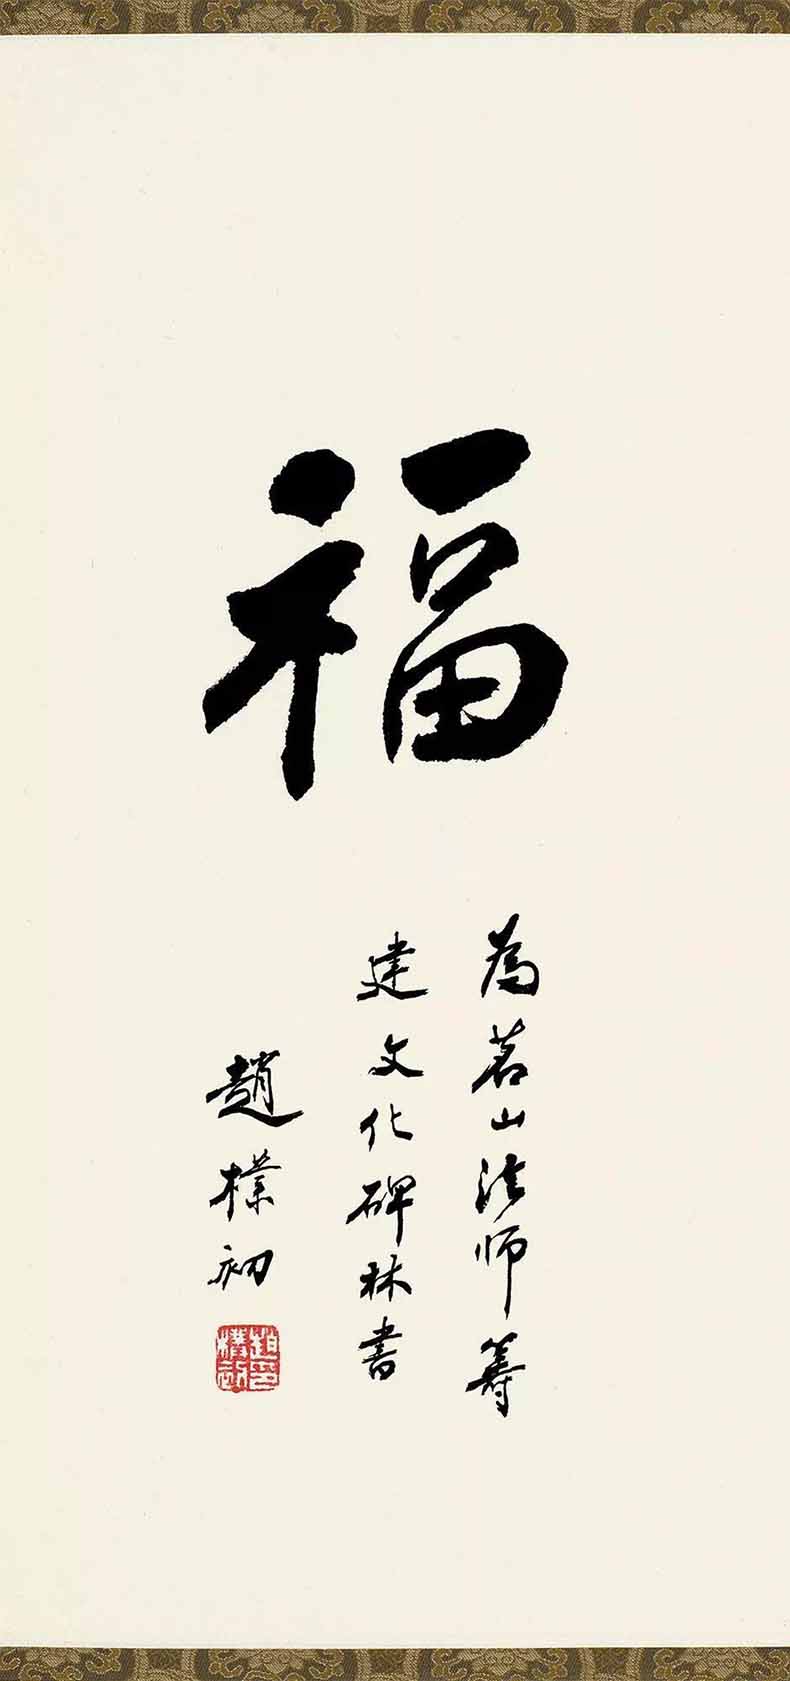 福
為茗山法师籌
建文化碑林書
趙樸初
趙樸初印